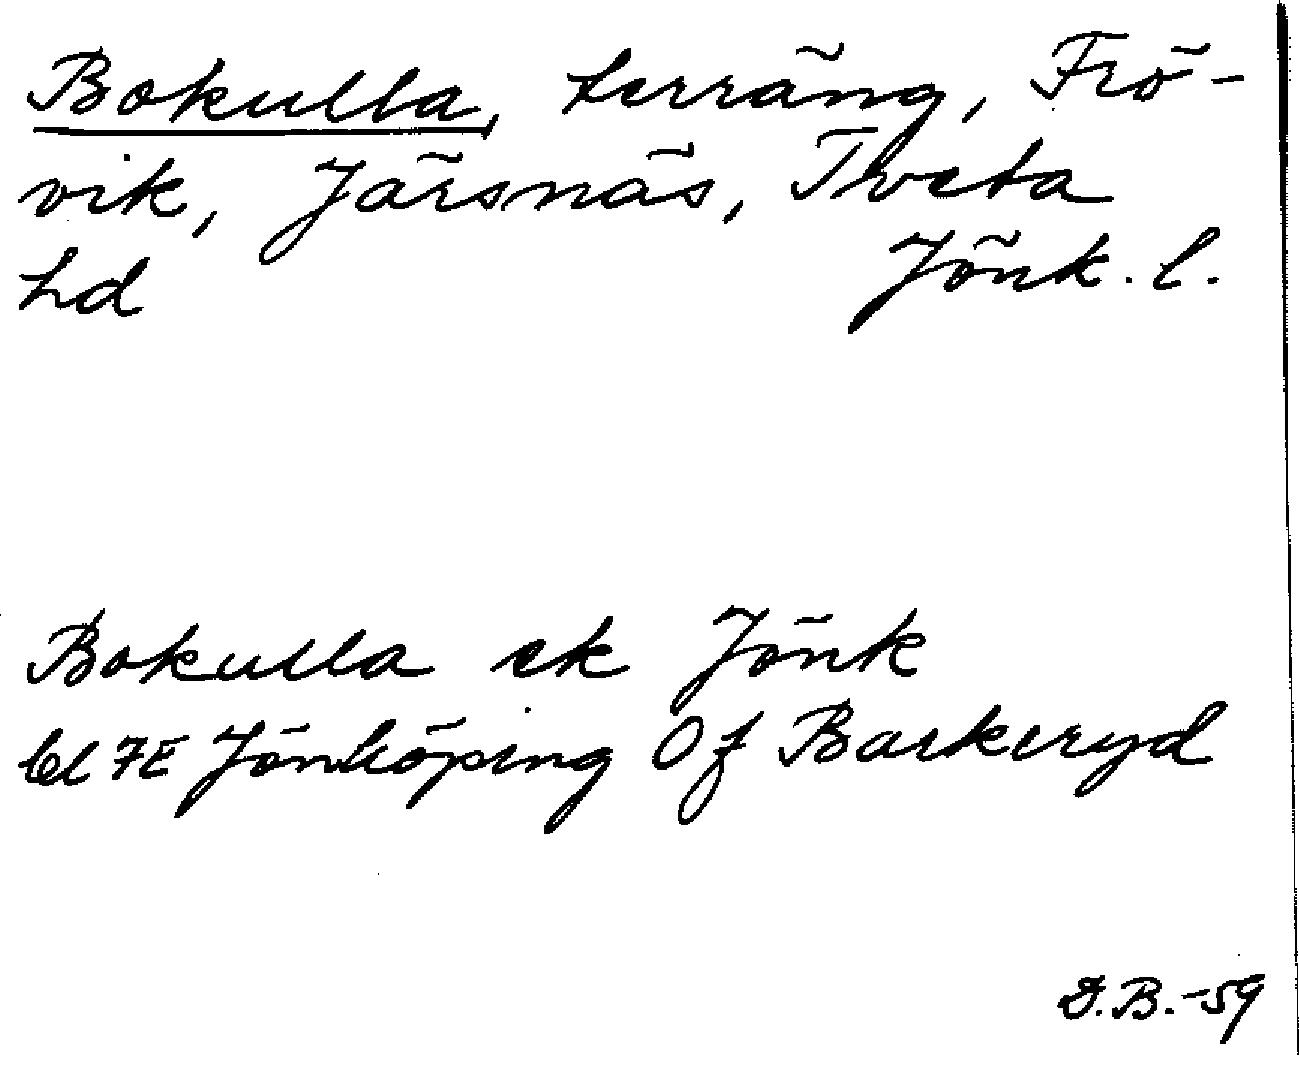 Bokulla, terräng, Frö-
vik, Järsnäs, Tveta
hd Jönk. l.
Bokulla ek Jönk
bl 7E Jönköping Of Barkeryd
D.B.-59